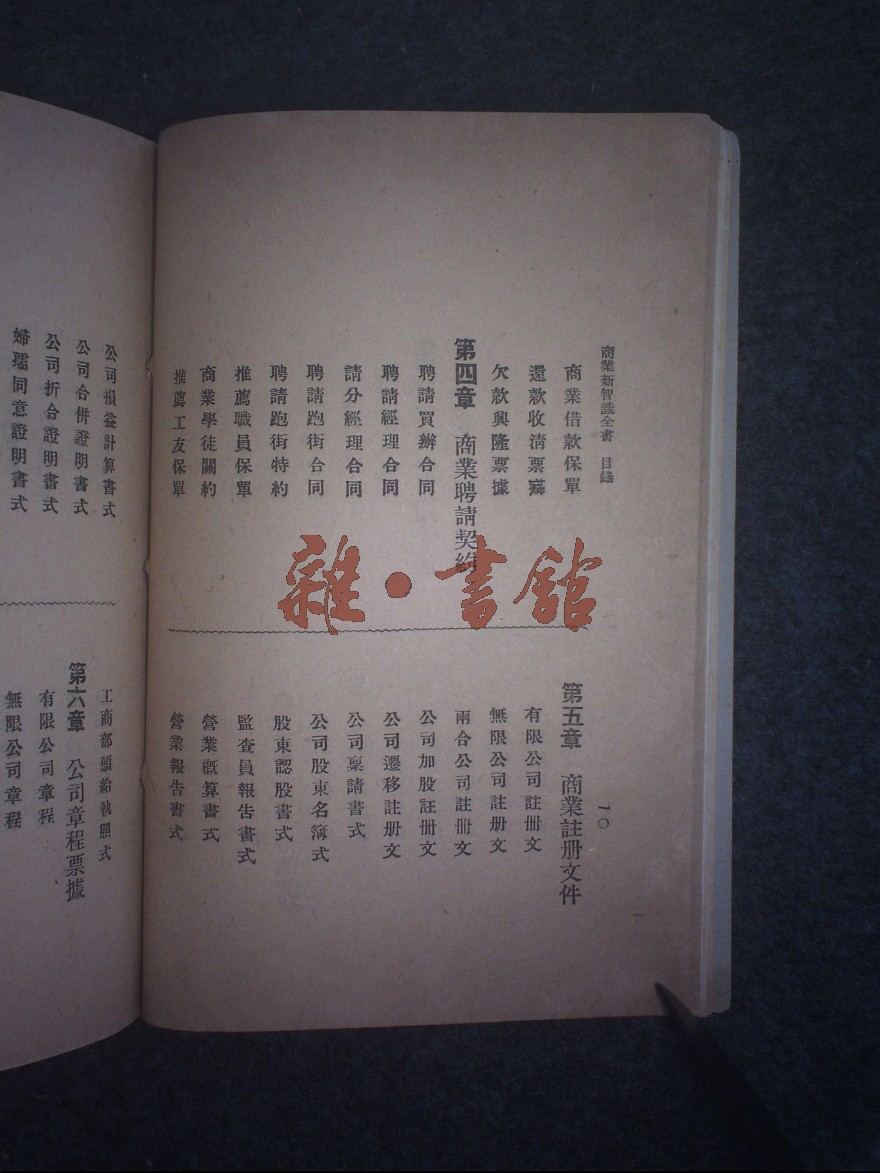 商業新智識全書 目錄
商業借款保單
還款收清票據
欠款興隆票據
第四章 商業聘請契約
聘請買辦合同
聘請經理合同
請分經理合同
聘請跑街合同
聘請跑街特約
推薦職員保單
商業學徒關約
推薦工友保單
一〇
第五章 商業註册文件
有限公司註册文
無限公司註册文
兩合公司註册文
公司加股註册文
公司遷移註册文
公司稟請書式
公司股東名簿式
股東認股書式
監查員報告書式
營業概算書式
營業報告書式
公司損益計算書式
公司合併證明書式
公司折合證明書式
婦孺同意證明書式
工商部頒給執照式
第六章 公司章程票據
有限公司章程
無限公司章程
雜·書館